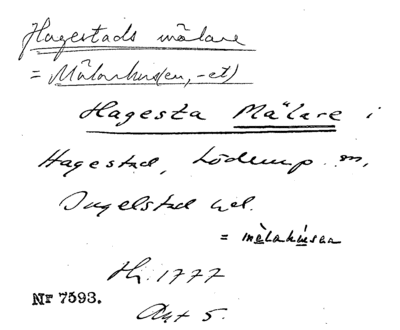 Hagestads mälare
= Mälarhus(en, -et)
Hagesta Mälare i
Hagestad, Löderup sn,
Ingelstad hd.
= mèlahúsen
Hj. 1777
Nr 7593.
Akt 5.